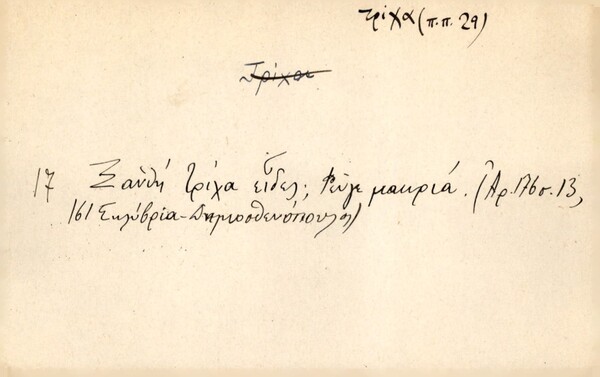 τρίχα (π.π. 29)
τρίχα
17 Ξανθή τρίχα εἶδες; Φεύγε μακριά. (Ἀρ. 176 σ. 13,
161 Σηλύβρια - Δημοσθενόπουλος)